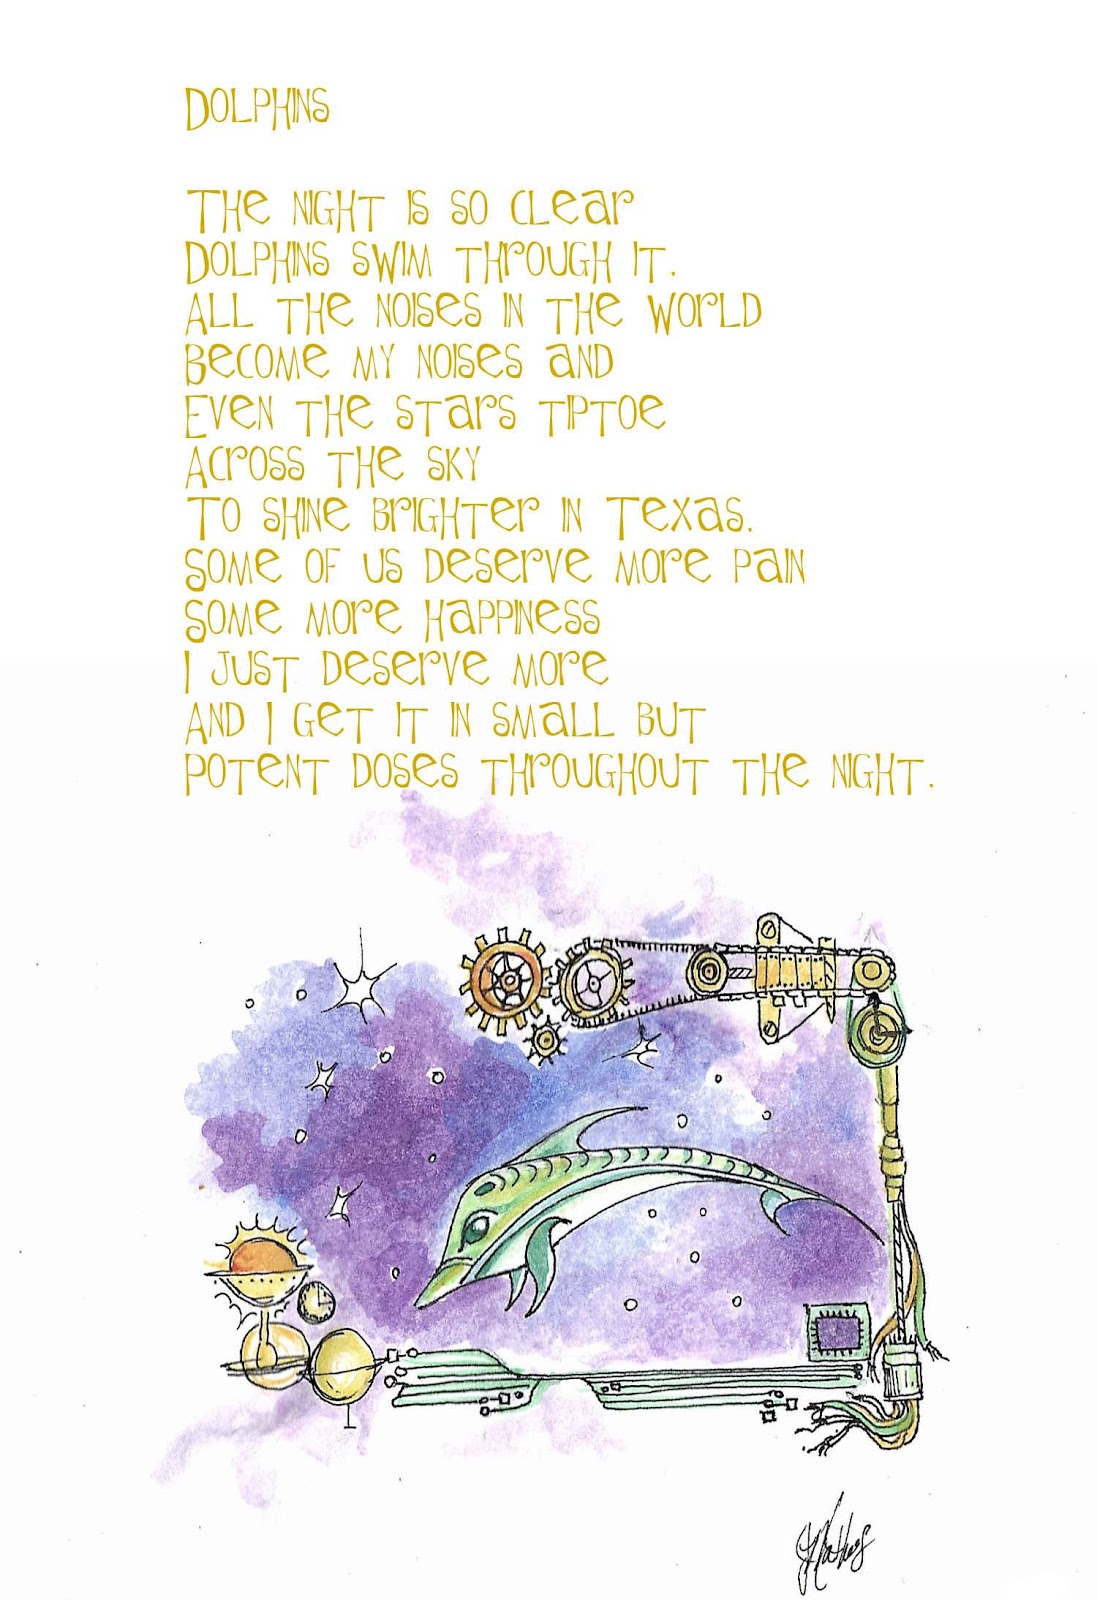 Dolphins
The night is so clear
Dolphins swim through it.
All the noises in the world
Become my noises and
Even the stars tiptoe
Across the sky
To shine brighter in Texas.
Some of us deserve more pain
Some more happiness
I just deserve more
And I get it in small but
Potent doses throughout the night.